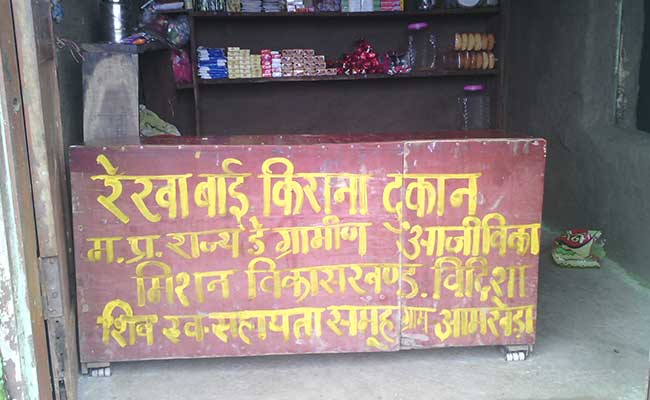 रेखा बाई किराना दुकान
म.प्र. राज्य डे ग्रामीण आजीविका
मिशन विकासखण्ड. विदिशा
शिव स्व-सहायता समूह ग्राम आमखेडा